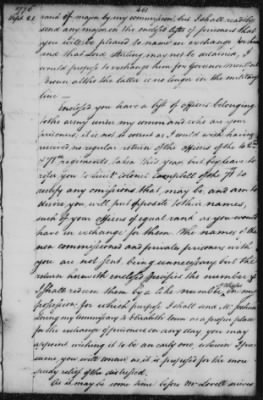 1776
Sept. 21.
401
rank of major by my commission, but I shall readily
send any major on the enclosed list of prisoners that
you will be pleased to name in exchange for him
and that Lord Stirling may not be detained, I
would propose to exchange him for Governor Mont
Brown altho the latter is no longer in the military
line
Enclosed you have a list of officers belonging
to the army under my command who are your
prisoners, it is not so correct as I could wish having
received no regular return of the officers of the 42nd
& 71st regiments taken this year but beg leave to
refer you to Lieut Colonel Campbell of the 71st to
rectify any omissions that may be, and am to
desire you will put opposite to their names,
such of your officers of equal rank as you would
have in exchange for them. The names of the
non commissioned and private prisoners with
you are not sent being unnecessary but the
return herewith enclosed specifies the number &
I shall redeem them by a like number in my
possession for which purpose I shall send Mr Joshua
Loring my commissary to Elizabeth town as a proper place
for the exchange of prisoners on any day you may
appoint wishing it to be an early one, wherein I pre
sume you will concur as it is proposed for the more
speedy relief of the distressed.
As it may be some time before Mr Lovell arrives